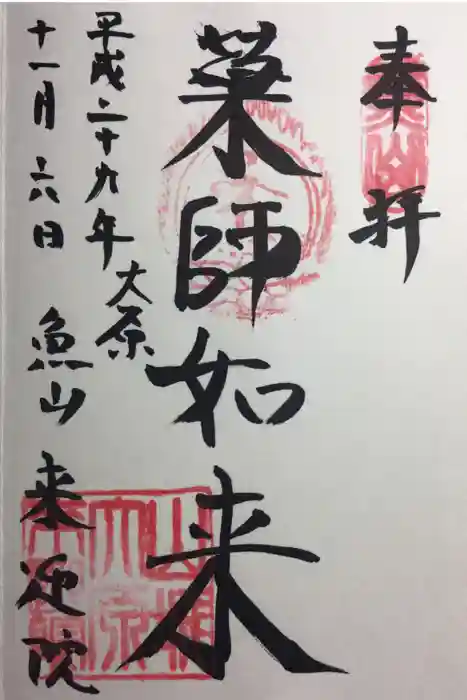 奉拝
薬師如来
平成二十九年
十一月六日
大原
魚山 来迎院